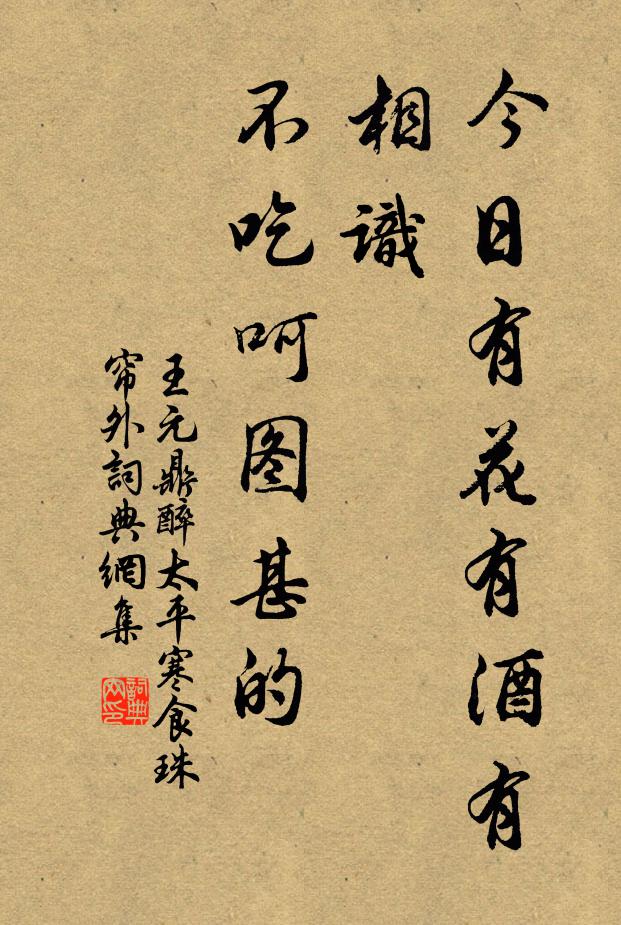 今日有花有酒有
相識
不吃呵图甚的
王元鼎醉太平寒食珠
帘外詞典網集
詞典
网印